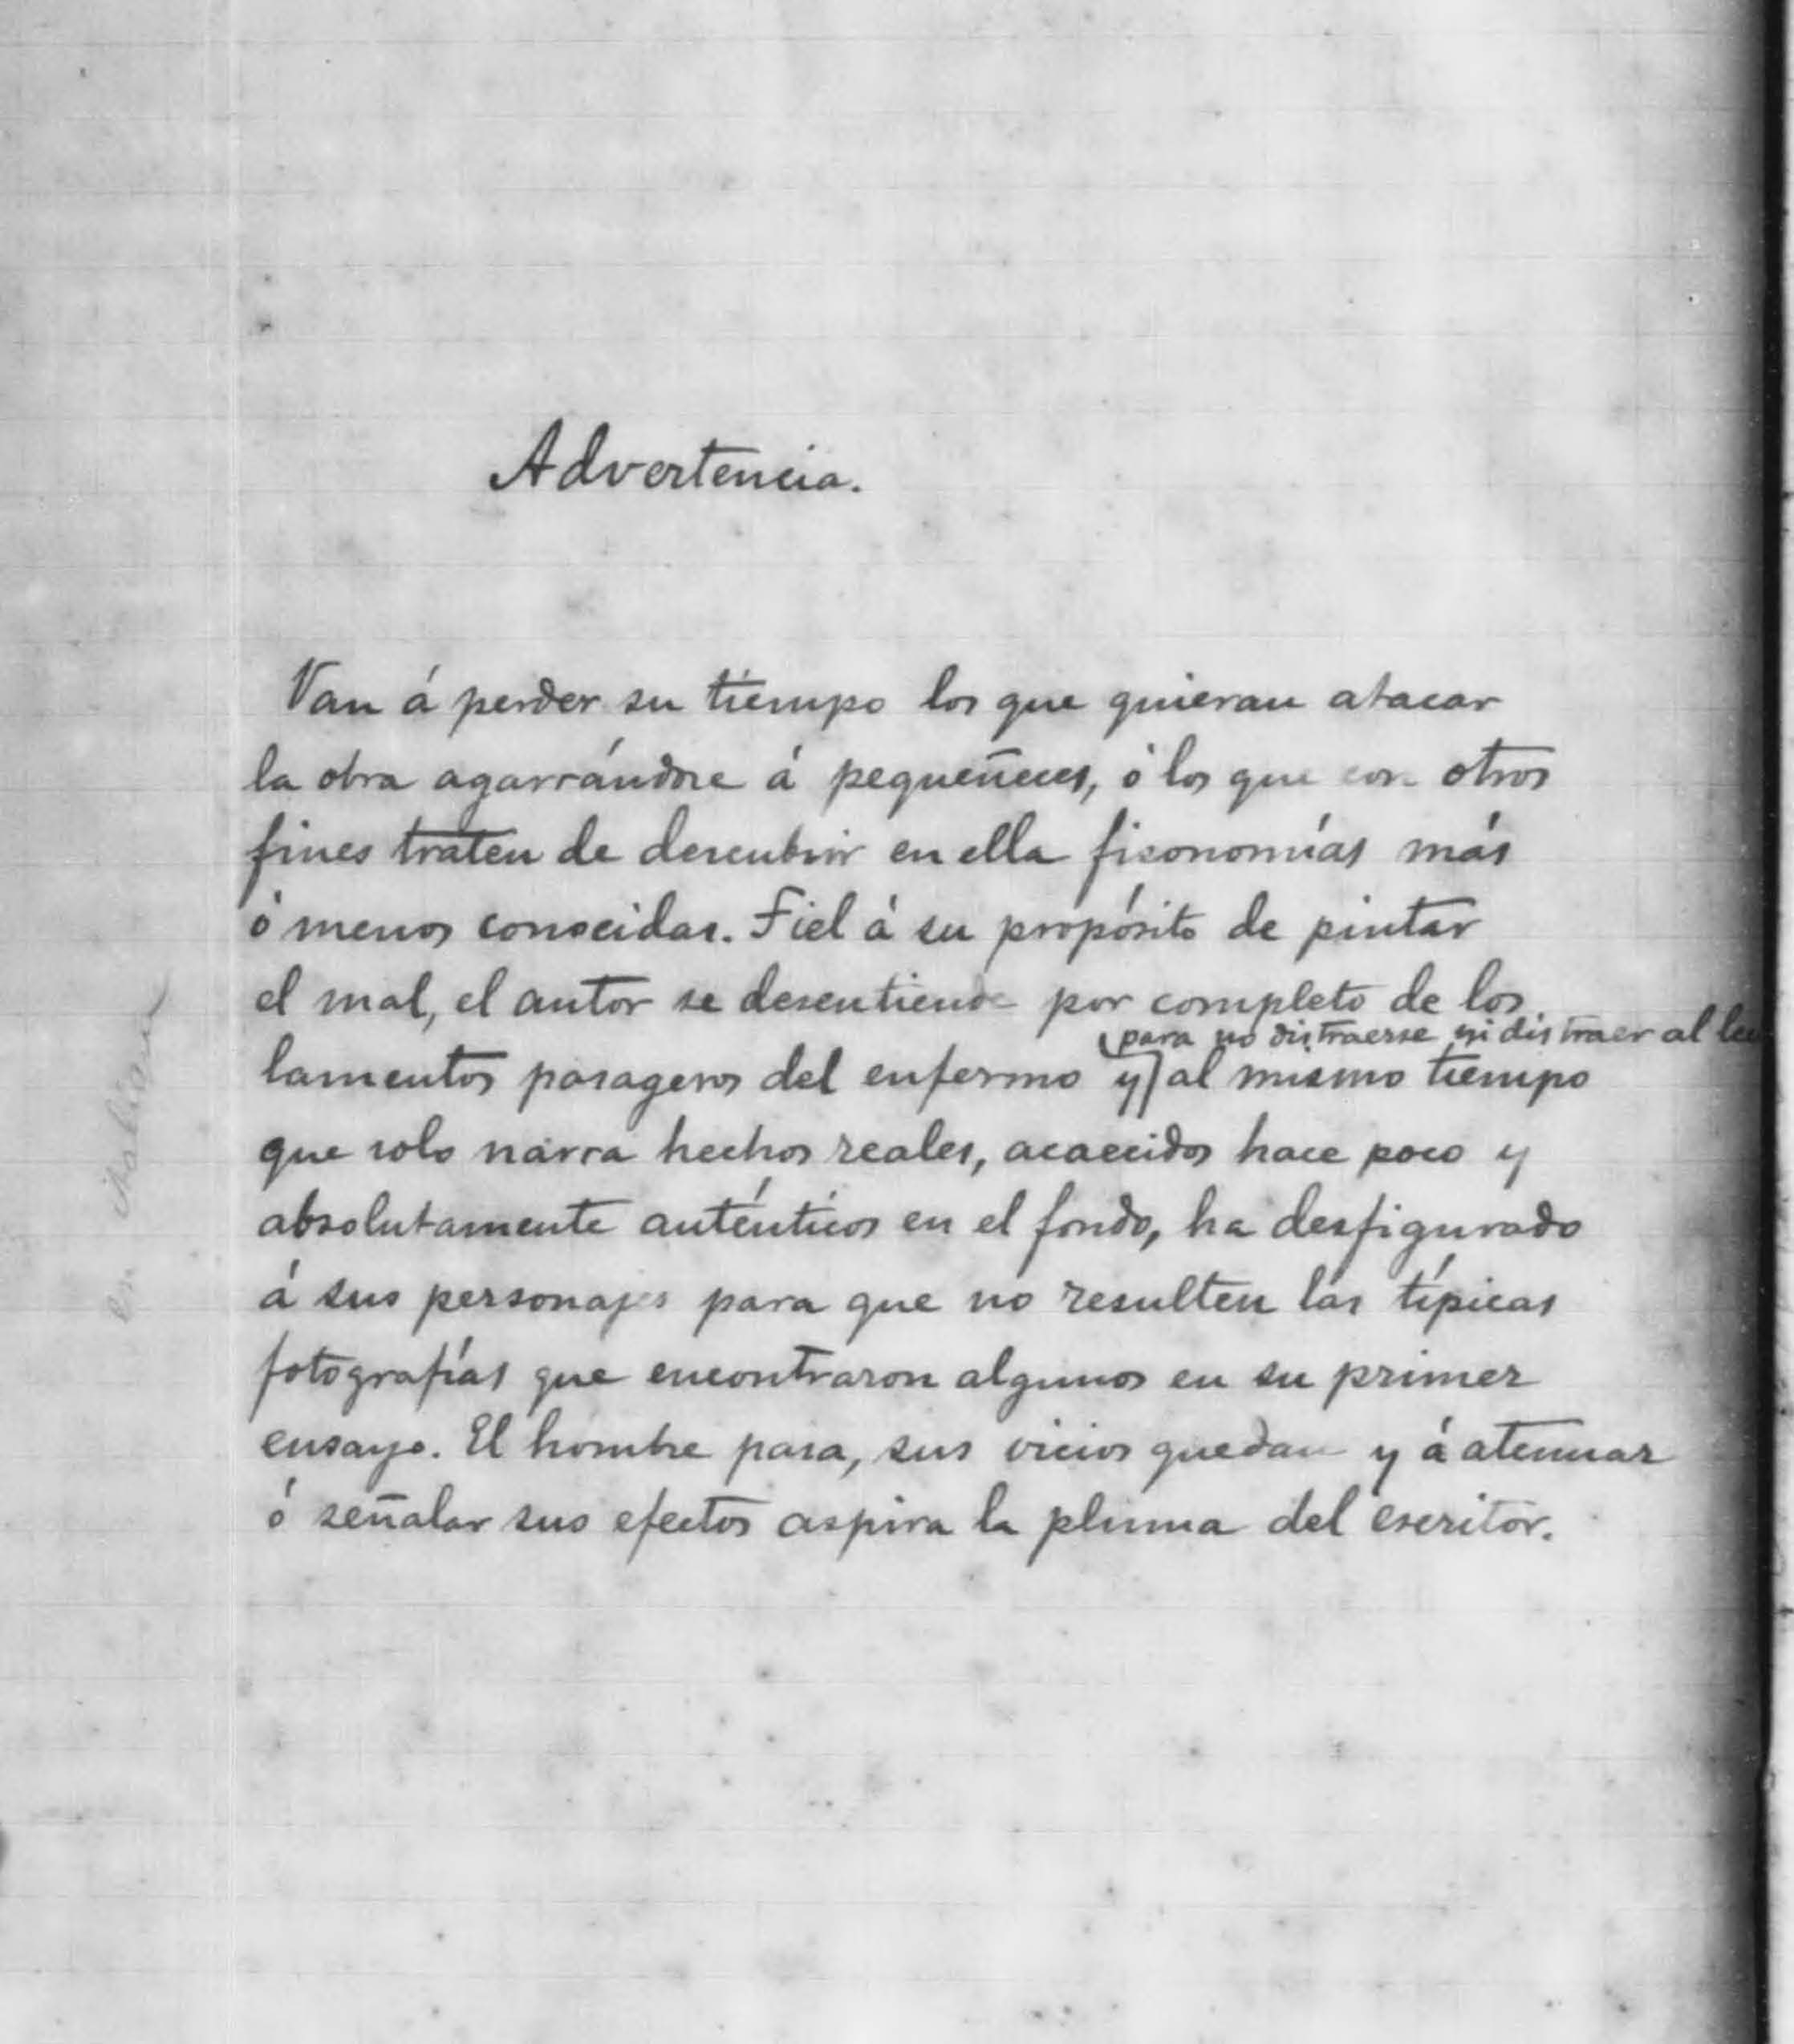 Advertencia.
Van á perder su tiempo los que quieran atacar
la obra agarrándose á pequeñeces, ó los que con otros
fines traten de descubrir en ella fisonomías más
ó menos conocidas. Fiel á su propósito de pintar
el mal, el autor se desentiende por completo de los
para no distraerse ni distraer al lec
lamentos pasageros del enfermo y al mismo tiempo
que solo narra hechos reales, acaecidos hace poco y
absolutamente auténticos en el fondo, ha desfigurado
á sus personajes para que no resulten las típicas
fotografías que encontraron algunos en su primer
ensayo. El hombre pasa, sus vicios quedan y á atenuar
ó señalar sus efectos aspira la pluma del escritor.
en itálica